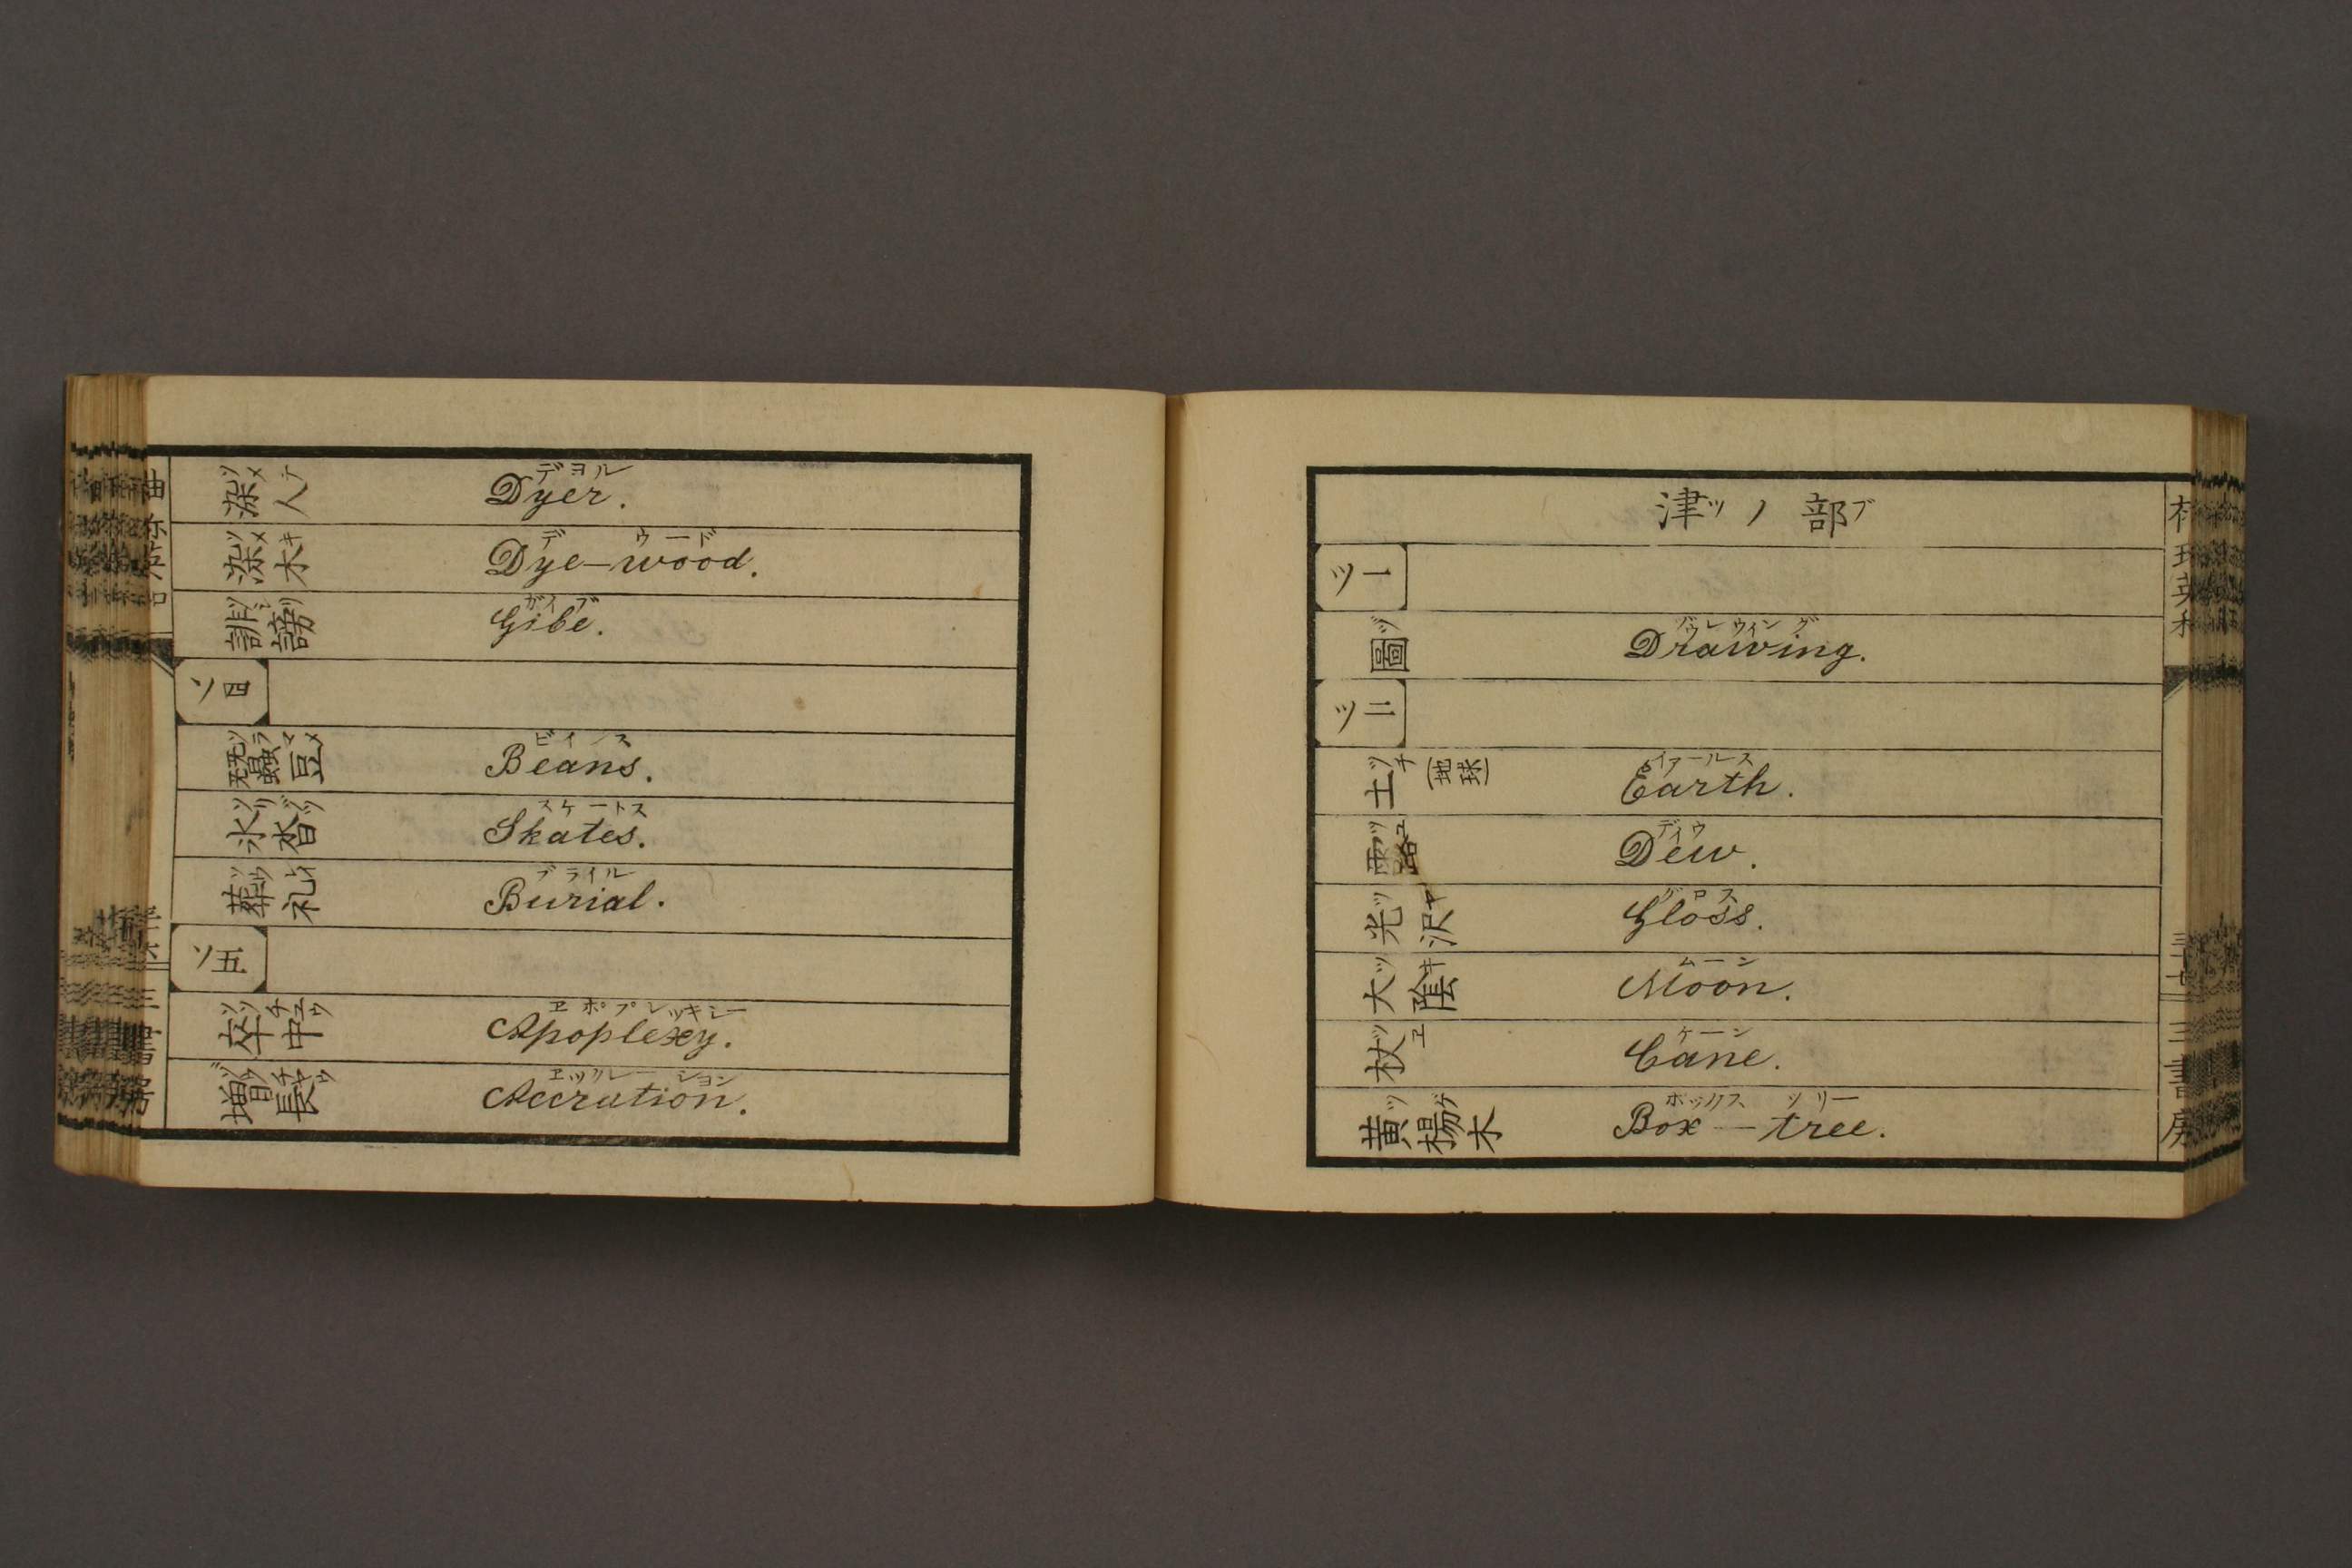 染人 ソメテ Dyer. デヨル
染木 ソメキ Dye-wood. デ ウード
誹謗 Gibe. ガイブ
ソ四
蠶豆 ソラマメ Beans. ビインス
氷沓 ソリグツ Skates. スケートス
葬礼 ソウレイ Burial. ブライル
ソ五
卒中 ソツチユウ Apoplexy. ヱポプレッキシー
増長 ゾウチヤウ Accrution.
津ツノ部ブ
ツ一
圖 ヅ Drawing.
ツ二
土 ツチ (地球) Earth. イアールス
露 ツユ Dew. デイウ
光沢 ツヤ Gloss. グロス
大陰 ツキ Moon. ムーン
杖 ツヱ Cane. ケーン
黄楊木 ツゲ Box-tree. ボックス ツリー
書房